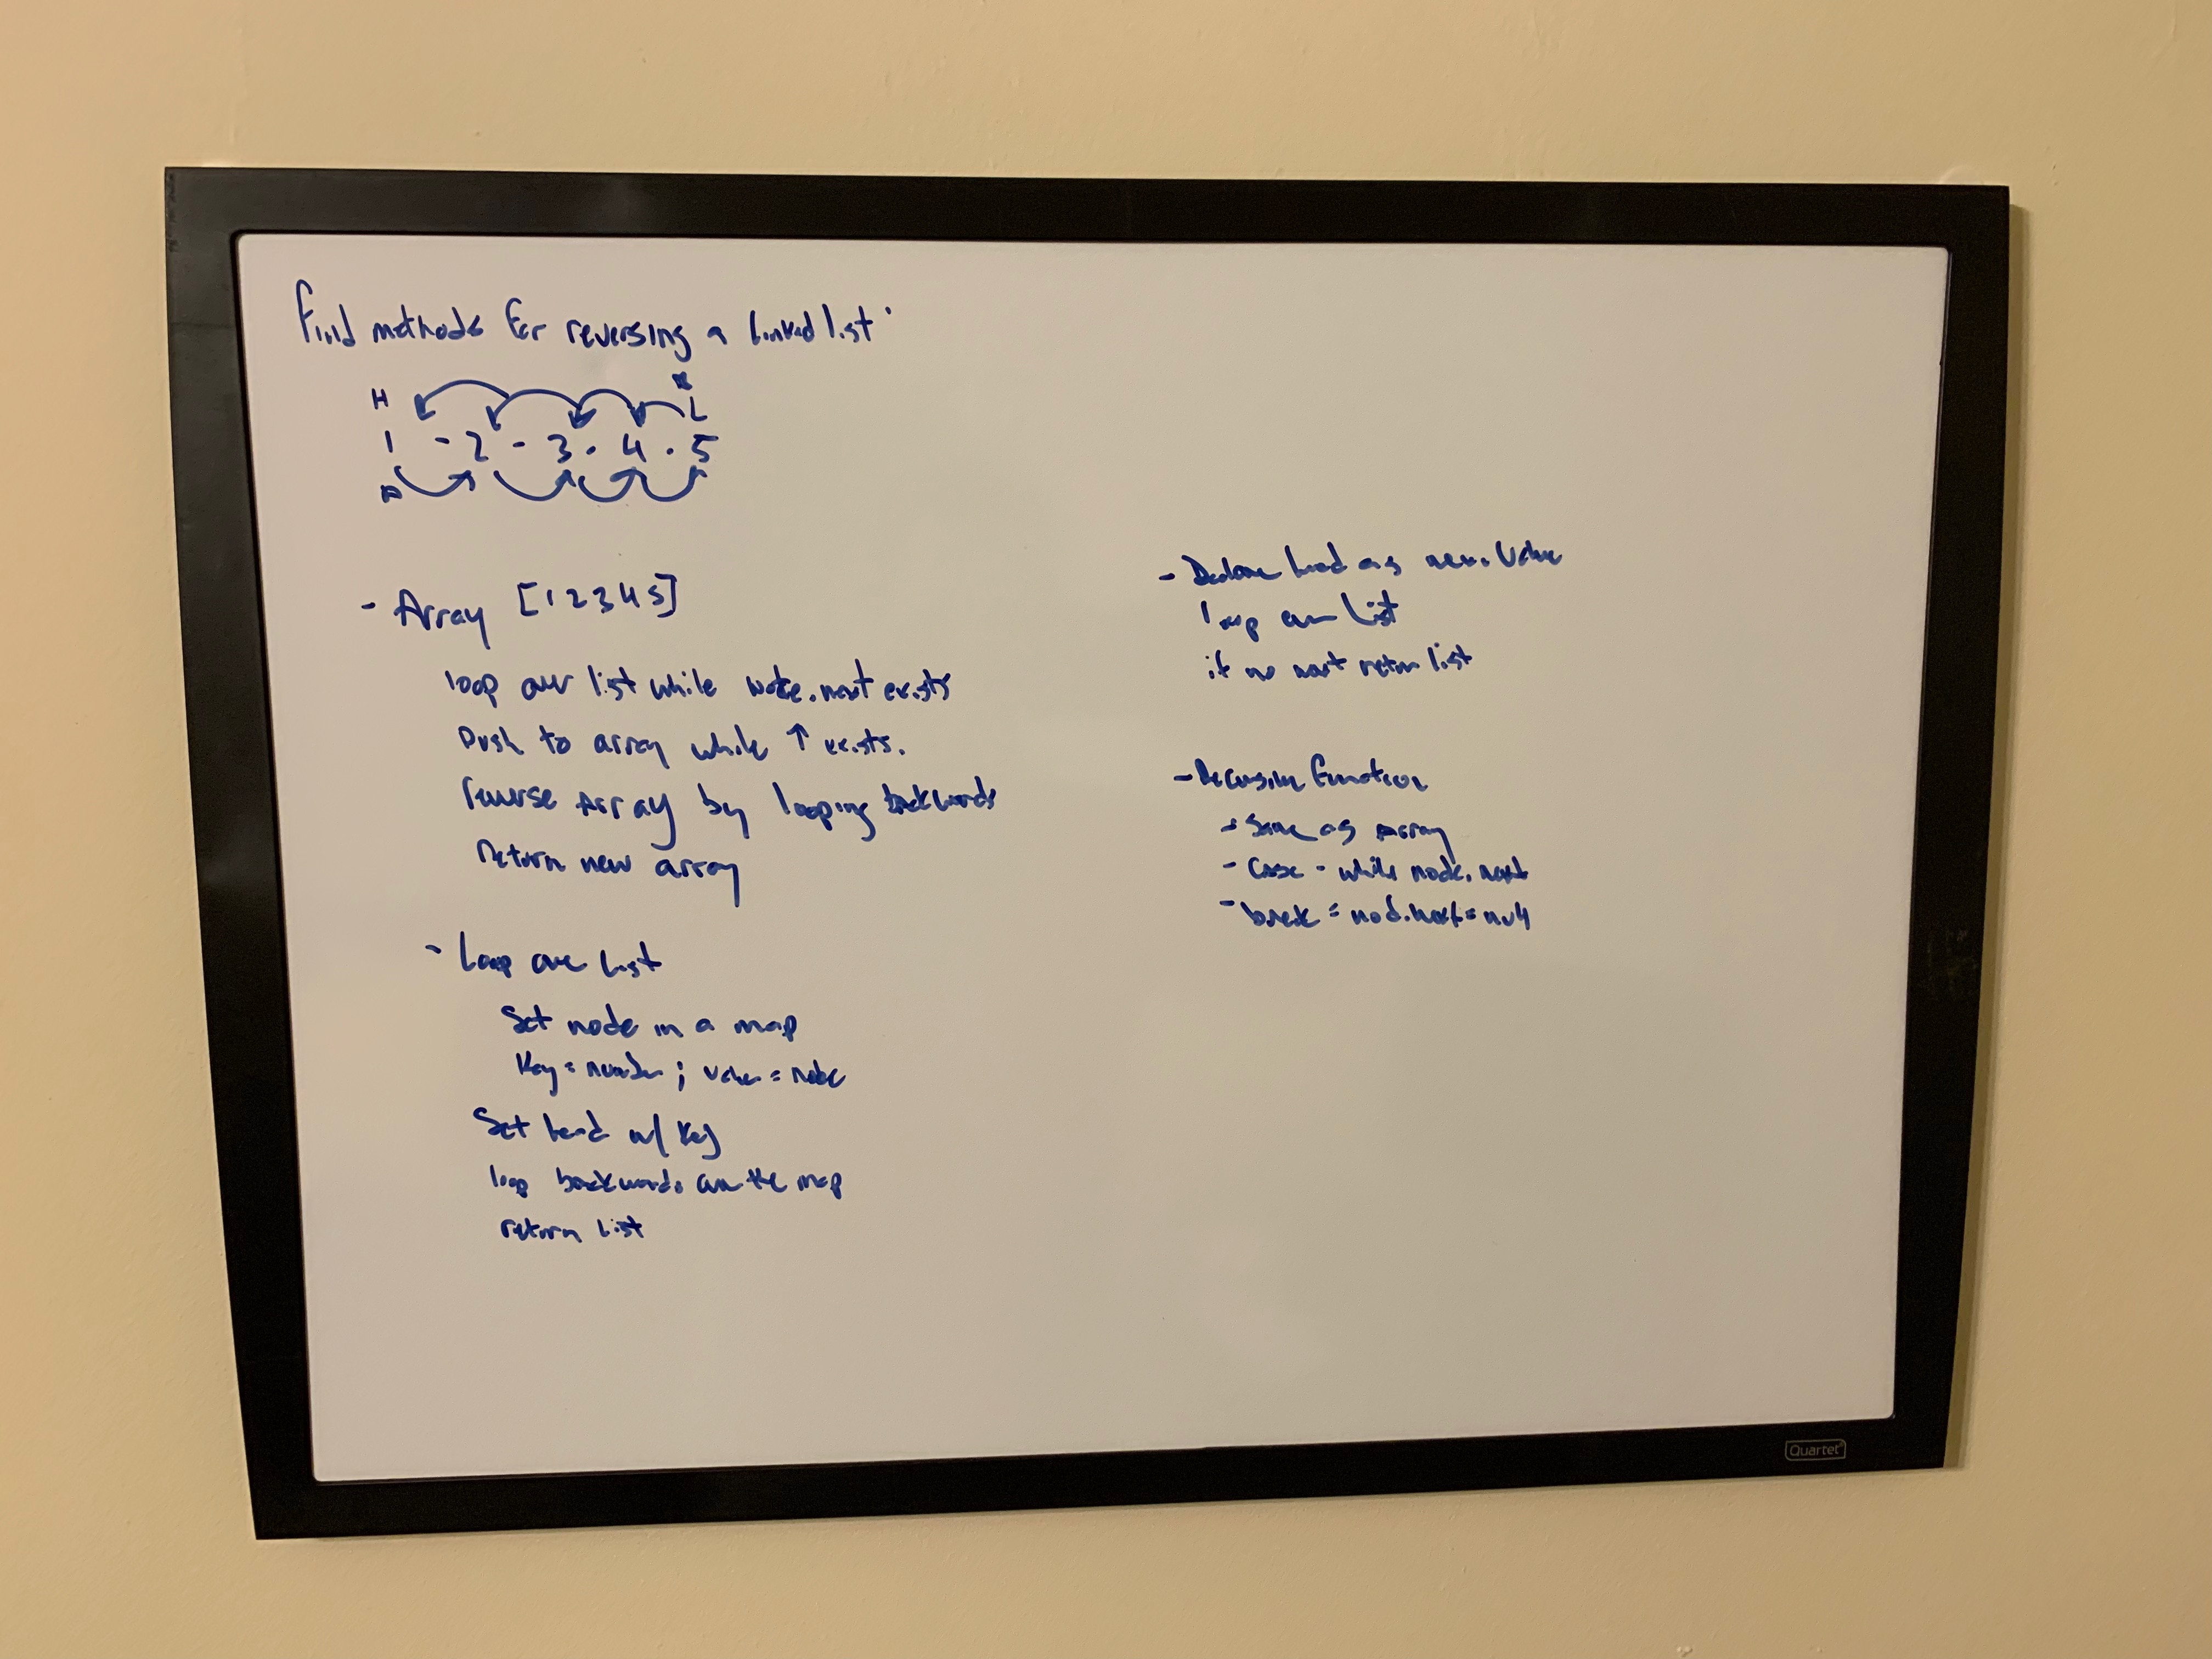 Find methods for reversing a linked list
H L
1 - 2 - 3 . 4 . 5
- Array [1 2 3 4 5]
loop over list while node.next exists
Push to array while ↑ exists.
reverse Array by looping backwards
return new array
- Loop over list
Set node in a map
Key = number ; value = node
Set head w/ key
loop backwards over the map
return list
- Declare head as new. Value
loop over list
if no next return list
- Recursive function
- Same as Array
- Case - while node.next
- break = nod.next = null
Quartet